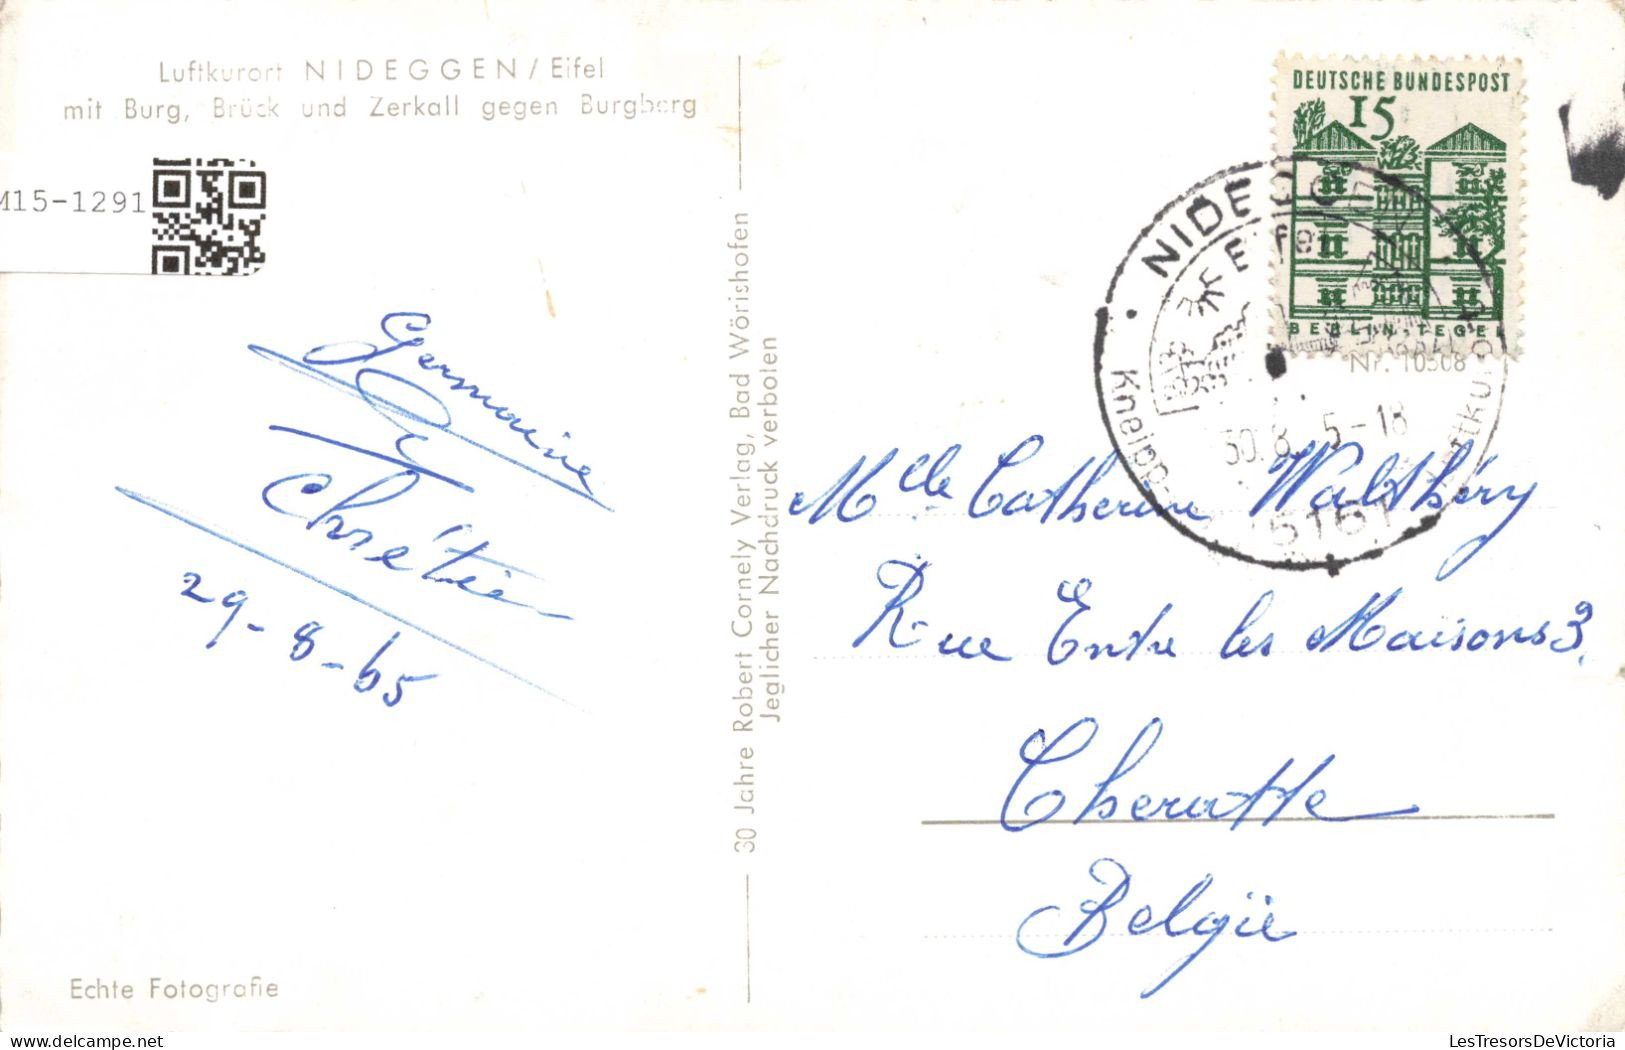 Luftkurort NIDEGGEN / Eifel
mit Burg, Brück und Zerkall gegen Burgberg
M15-1291
Germaine
Chrétien
29-8-65
Echte Fotografie
30 Jahre Robert Cornely Verlag, Bad Wörishofen
Jeglicher Nachdruck verboten
DEUTSCHE BUNDESPOST
15
BERLIN TEGEL
Nr. 10508
NIDEGGEN
Eifel
30.8. 5-18
5161
Kneipp-
Luftkurort
Mlle Catherine Walthéry
Rue Entre les Maisons 3.
Cheratte
Belgïe
LesTresorsDeVictoria.com